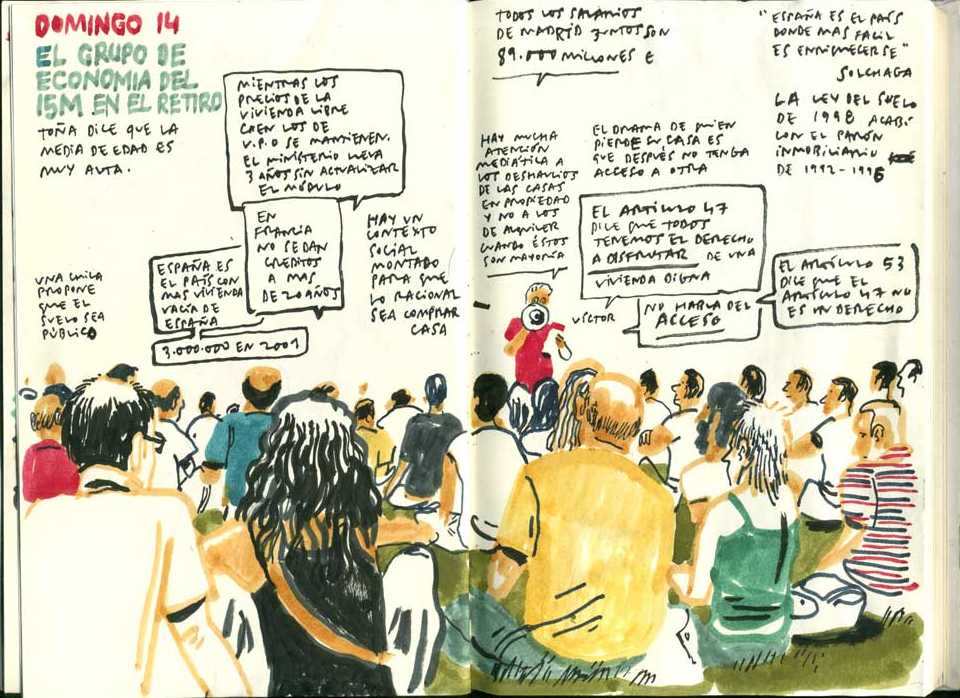 DOMINGO 14
EL GRUPO DE
ECONOMIA DEL
15M EN EL RETIRO
TOÑA DICE QUE LA
MEDIA DE EDAD ES
MUY ALTA.
MIENTRAS LOS
PRECIOS DE LA
VIVIENDA LIBRE
CAEN LOS DE
V.P.O SE MANTIENEN.
EL MINISTERIO LLEVA
3 AÑOS SIN ACTUALIZAR
EL MÓDULO
EN
FRANCIA
NO SE DAN
CREDITOS
A MAS
DE 20 AÑOS
HAY UN
CONTEXTO
SOCIAL
MONTADO
PARA QUE
LO RACIONAL
SEA COMPRAR
CASA
ESPAÑA ES
EL PAÍS CON
MAS VIVIENDA
VACÍA DE
ESPAÑA
3.000.000 EN 2001
UNA CHICA
PROPONE
QUE EL
SUELO SEA
PÚBLICO
TODOS LOS SALARIOS
DE MADRID JUNTOS SON
89.000 MILLONES €
"ESPAÑA ES EL PAÍS
DONDE MAS FACIL
ES ENRIQUECERSE"
SOLCHAGA
LA LEY DEL SUELO
DE 1998 ACABÓ
CON EL PARÓN
INMOBILIARIO
DE 1992-1996
HAY MUCHA
ATENCIÓN
MEDIÁTICA A
LOS DESHAUCIOS
DE LAS CASAS
EN PROPIEDAD
Y NO A LOS
DE ALQUILER
CUANDO ÉSTOS
SON MAYORÍA
EL DRAMA DE QUIEN
PIERDE SU CASA ES
QUE DESPUÉS NO TENGA
ACCESO A OTRA
EL ARTÍCULO 47
DICE QUE TODOS
TENEMOS EL DERECHO
A DISFRUTAR DE UNA
VIVIENDA DIGNA
VÍCTOR
NO HABLA DEL
ACCESO
EL ARTÍCULO 53
DICE QUE EL
ARTÍCULO 47 NO
ES UN DERECHO